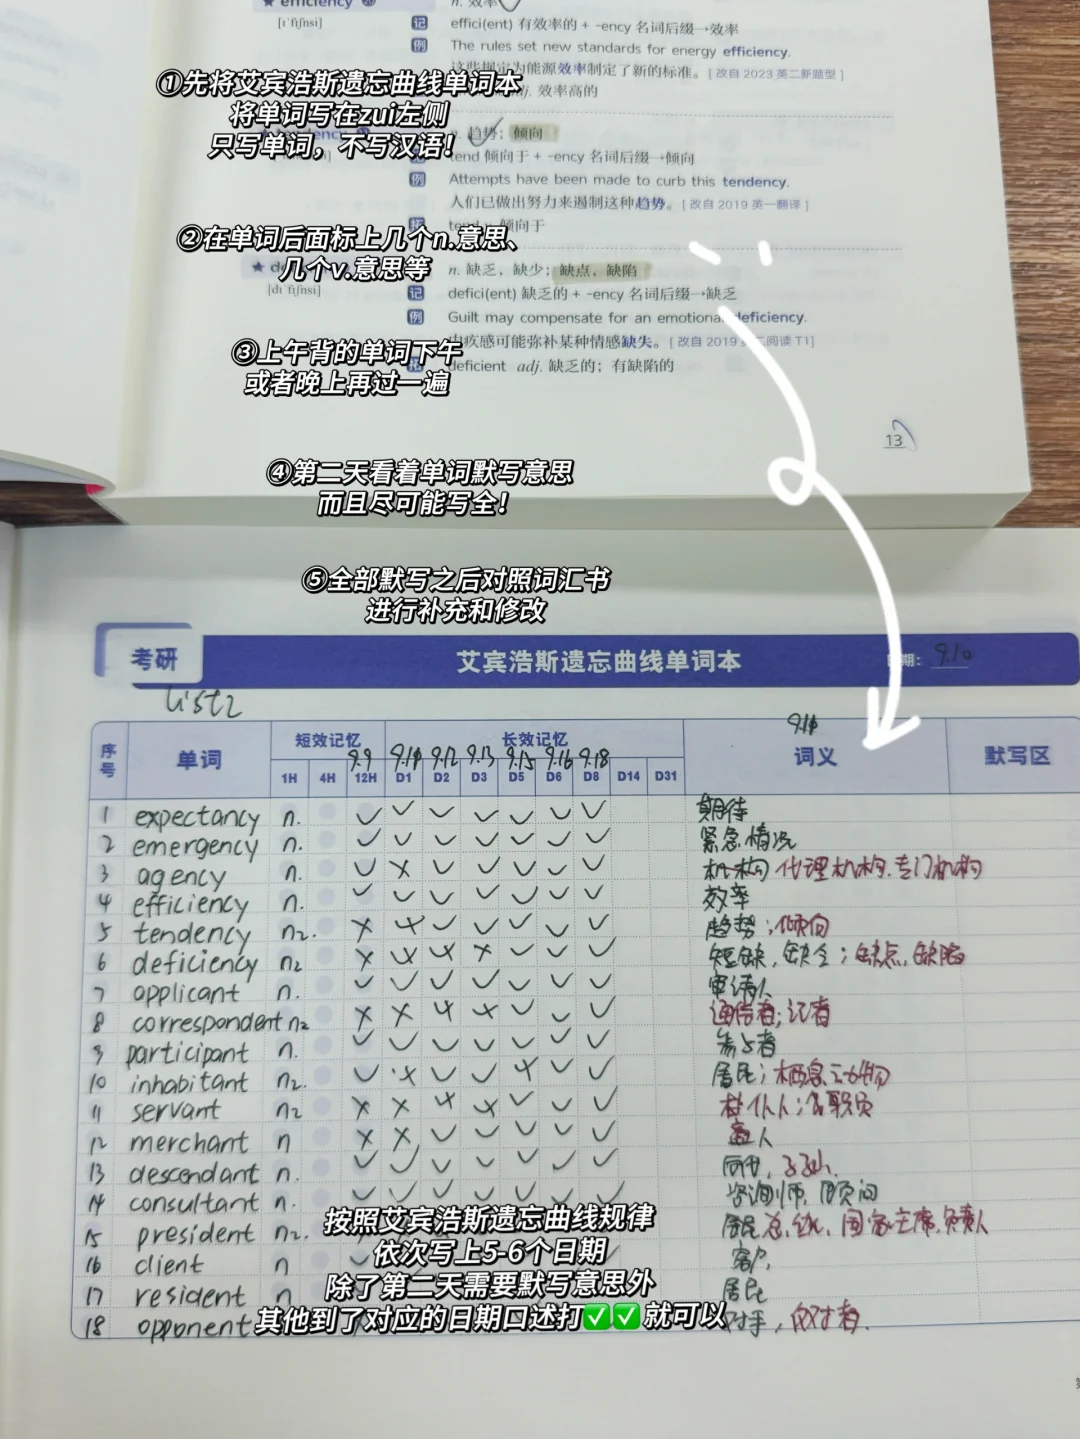 efficiency
n. 效率
[ɪˈfɪʃnsi]
记 effici(ent) 有效率的 + -ency 名词后缀→效率
例 The rules set new standards for energy efficiency.
这些规定为能源效率制定了新的标准。[ 改自 2023 英二新题型 ]
效率高的
①先将艾宾浩斯遗忘曲线单词本
将单词写在zui左侧
只写单词，不写汉语！
n. 趋势；倾向
tend 倾向于 + -ency 名词后缀→倾向
例 Attempts have been made to curb this tendency.
人们已做出努力来遏制这种趋势。[ 改自 2019 英一翻译 ]
倾向于
②在单词后面标上几个n.意思、
几个v.意思等
n. 缺乏，缺少；缺点，缺陷
[dɪˈfɪʃnsi]
记 defici(ent) 缺乏的 + -ency 名词后缀→缺乏
例 Guilt may compensate for an emotional deficiency.
内疚感可能弥补某种情感缺失。[ 改自 2019 英二阅读 T1]
deficient adj. 缺乏的；有缺陷的
③上午背的单词下午
或者晚上再过一遍
13
④第二天看着单词默写意思
而且尽可能写全！
⑤全部默写之后对照词汇书
进行补充和修改
考研
艾宾浩斯遗忘曲线单词本
期： 9.10
List2
序号 单词 短效记忆 长效记忆 词义 默写区
9.9 9.10 9.12 9.13 9.15 9.16 9.18
1H 4H 12H D1 D2 D3 D5 D6 D8 D14 D31
1 expectancy n. 期待
2 emergency n. 紧急情况
3 agency n. 机构 代理机构.专门机构
4 efficiency n. 效率
5 tendency n2. 趋势；倾向
6 deficiency n2 短缺，缺乏；缺点，缺陷
7 applicant n. 申请人
8 correspondent n2 通信者；记者
9 participant n. 参与者
10 inhabitant n2. 居民；栖息动物
11 servant n2 仆人；公职员
12 merchant n 商人
13 descendant n. 后代，子孙.
14 consultant n. 咨询师，顾问
15 president n2. 居民 总统，国家主席，负责人
16 client n 客户
17 resident n 居民
18 opponent 对手，反对者.
按照艾宾浩斯遗忘曲线规律
依次写上5-6个日期
除了第二天需要默写意思外
其他到了对应的日期口述打✅✅就可以